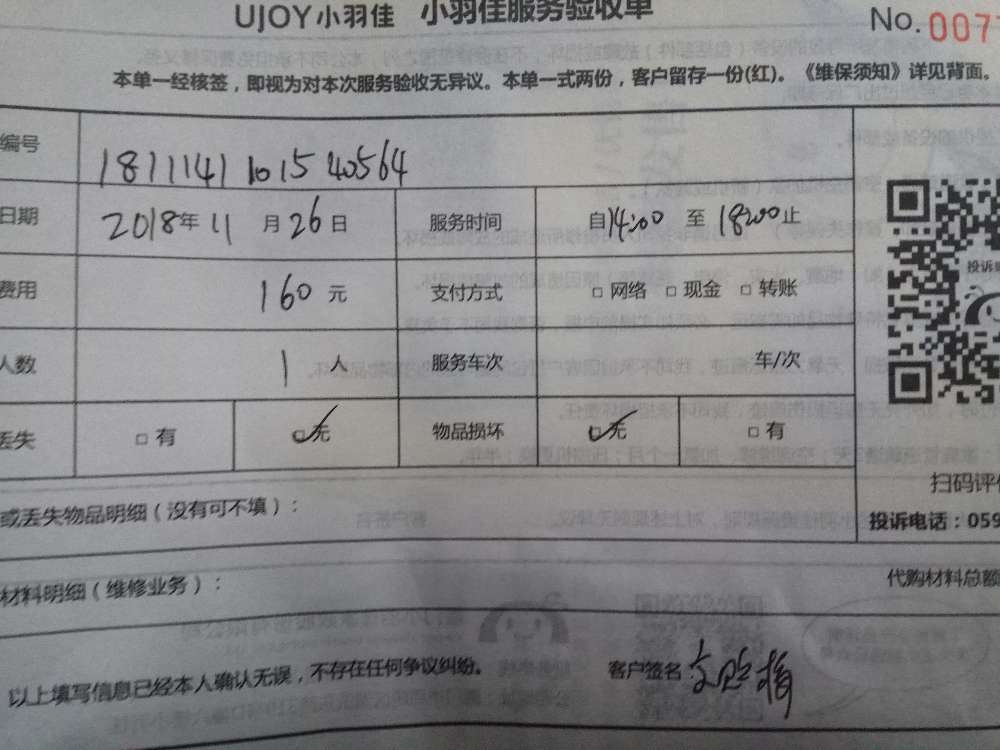 UJOY小羽佳 小羽佳服务验收单 No. 007
本单一经核签，即视为对本次服务验收无异议。本单一式两份，客户留存一份(红)。《维保须知》详见背面。
编号 1811141101540564
日期 2018年11月26日 服务时间 自14:00 至 18:00止
费用 160元 支付方式 □ 网络 □ 现金 □ 转账
投诉
人数 1 人 服务车次 车/次
丢失 □ 有 □无 物品损坏 □无 □ 有
扫码评
或丢失物品明细（没有可不填）：
投诉电话：059
材料明细（维修业务）：
代购材料总额
以上填写信息已经本人确认无误，不存在任何争议纠纷。 客户签名：